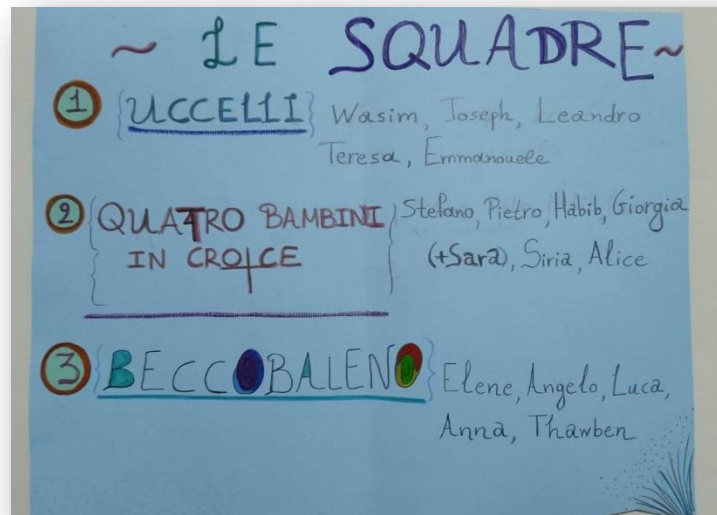 ~ LE SQUADRE ~
1 {UCCELLI} Wasim, Joseph, Leandro
Teresa, Emmanouele
2 {QUATTRO BAMBINI} Stefano, Pietro, Habib, Giorgia
IN CROICE (+Sara), Siria, Alice
3 {BECCOBALENO} Elene, Angelo, Luca,
Anna, Thawben